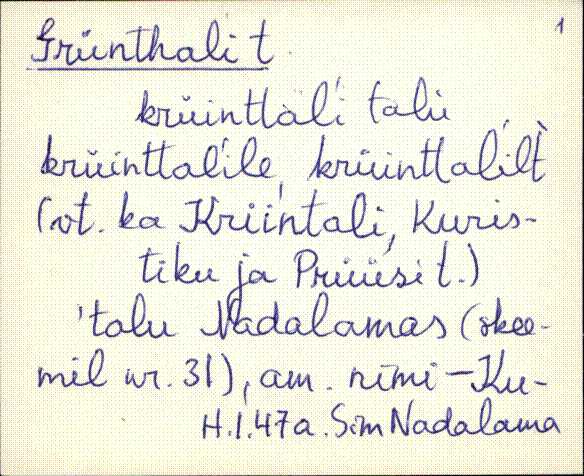 1
Grünthali t
krüinttali talu
krüinttalile, krüinttalilt
(vt. ka Kriintali, Kuris-
tiku ja Prüüsi t.)
'talu Nadalamas (skee-
mil nr. 31), am. nimi – Ku-
H.I.47a. Sim Nadalama